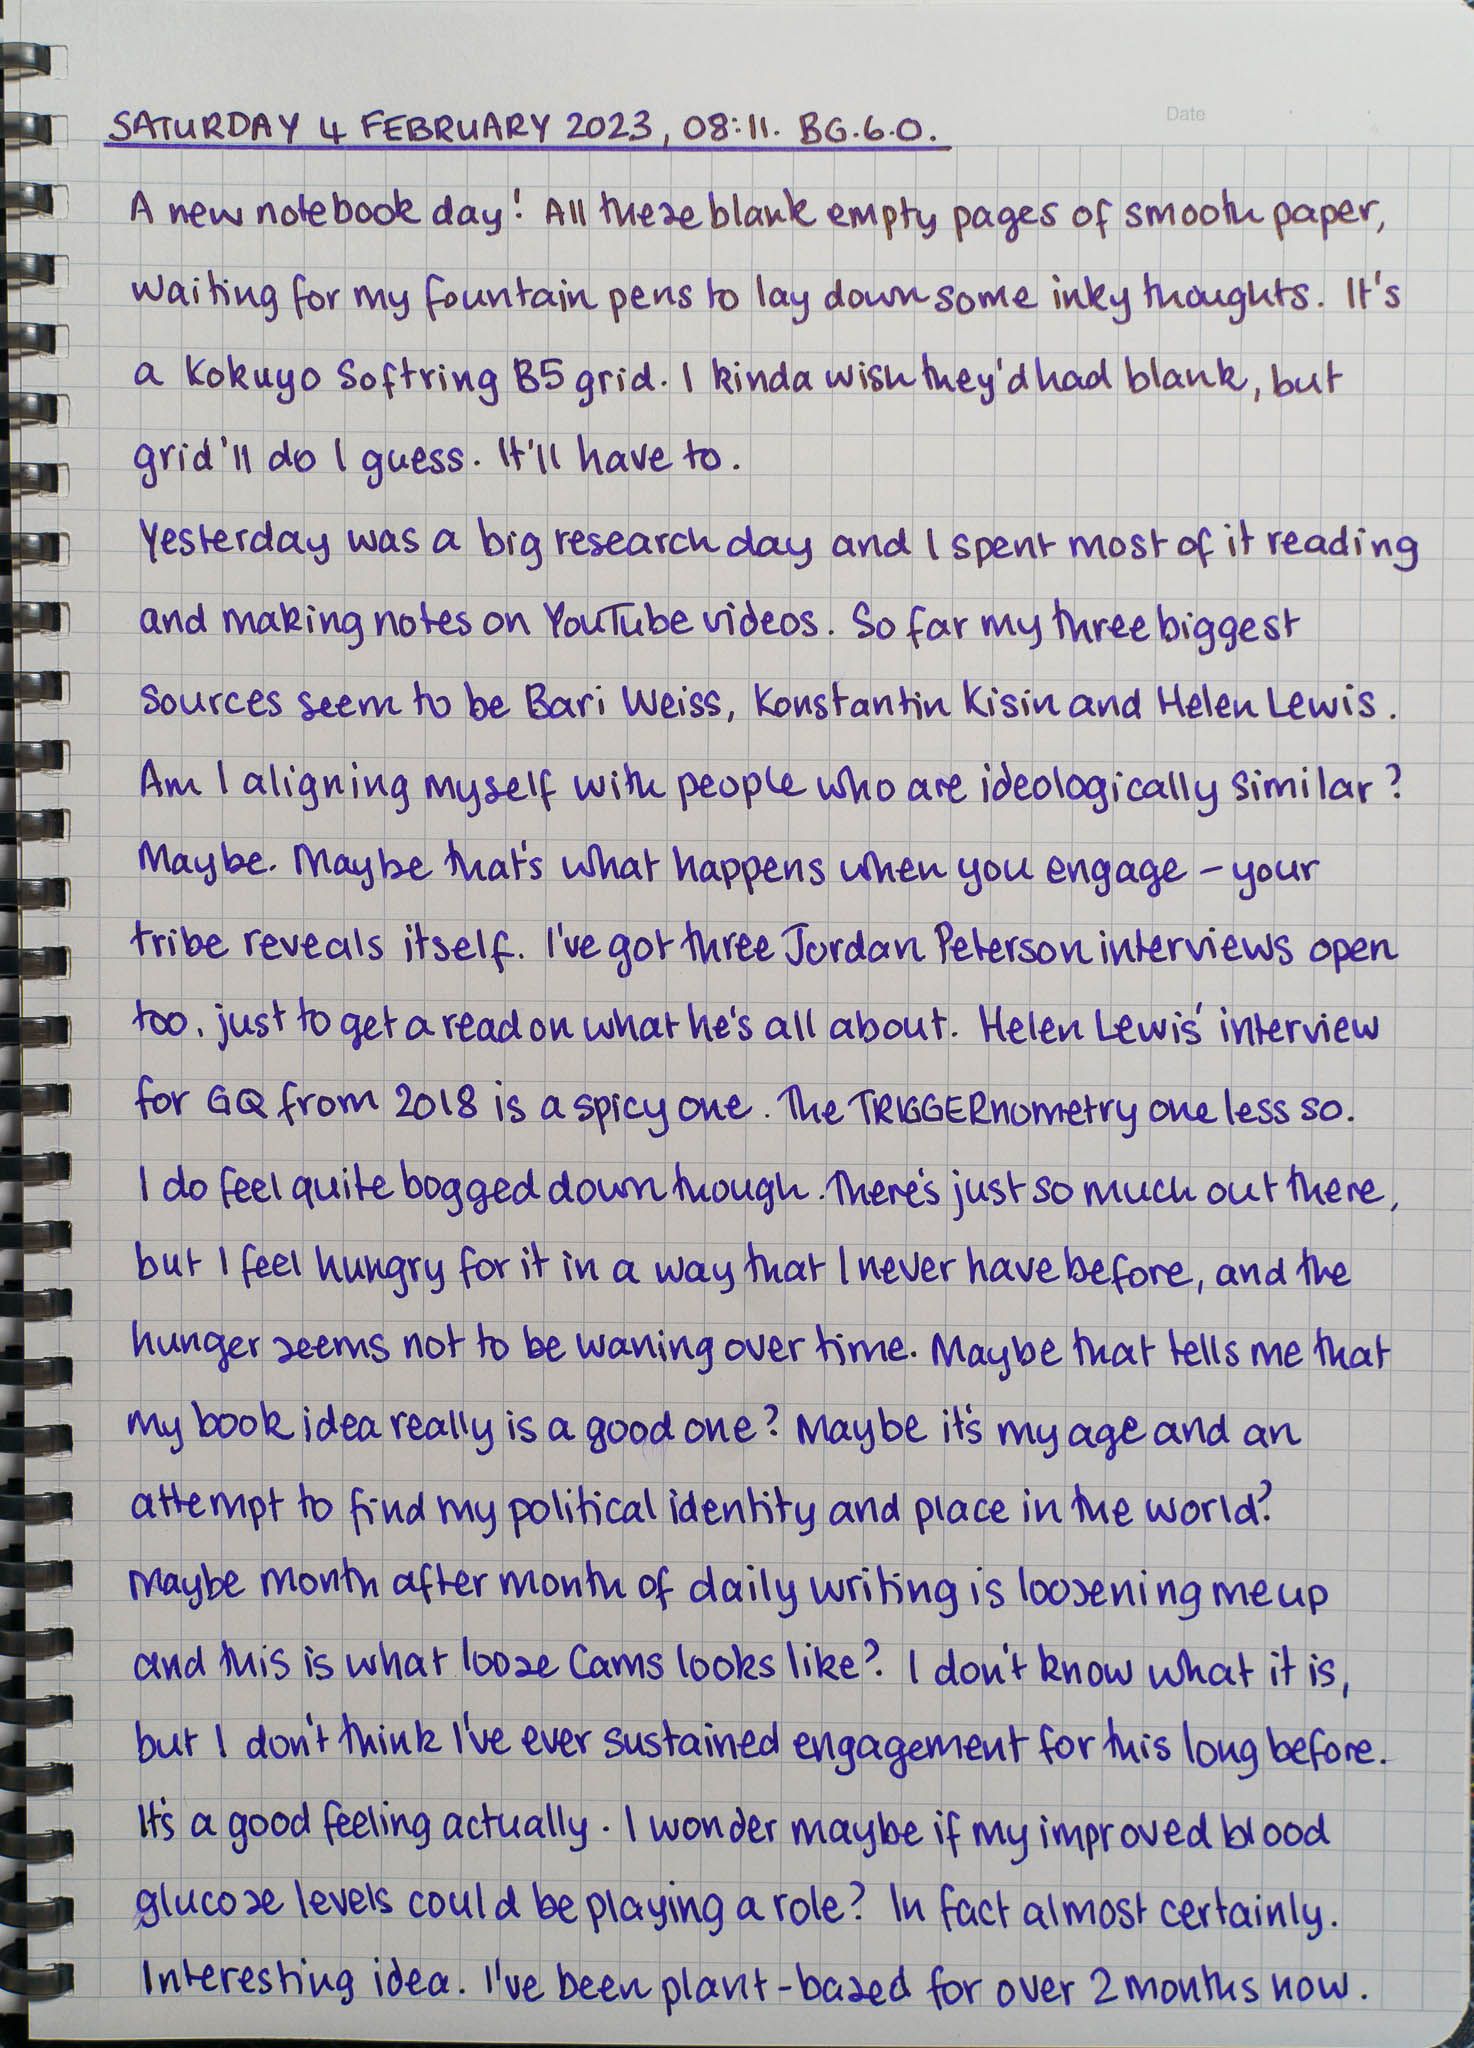 Date
SATURDAY 4 FEBRUARY 2023, 08:11. BG.6.0.
A new notebook day! All these blank empty pages of smooth paper,
waiting for my fountain pens to lay down some inky thoughts. It's
a Kokuyo Softring B5 grid. I kinda wish they'd had blank, but
grid'll do I guess. It'll have to.
Yesterday was a big research day and I spent most of it reading
and making notes on YouTube videos. So far my three biggest
sources seem to be Bari Weiss, Konstantin Kisin and Helen Lewis.
Am I aligning myself with people who are ideologically similar?
Maybe. Maybe that's what happens when you engage – your
tribe reveals itself. I've got three Jordan Peterson interviews open
too, just to get a read on what he's all about. Helen Lewis' interview
for GQ from 2018 is a spicy one. The TRIGGERnometry one less so.
I do feel quite bogged down though. There's just so much out there,
but I feel hungry for it in a way that I never have before, and the
hunger seems not to be waning over time. Maybe that tells me that
my book idea really is a good one? Maybe it's my age and an
attempt to find my political identity and place in the world?
Maybe month after month of daily writing is loosening me up
and this is what loose Cams looks like? I don't know what it is,
but I don't think I've ever sustained engagement for this long before.
It's a good feeling actually. I wonder maybe if my improved blood
glucose levels could be playing a role? In fact almost certainly.
Interesting idea. I've been plant-based for over 2 months now.